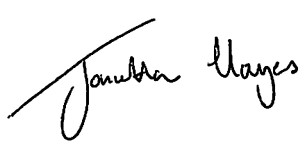 Jonathan Hayes